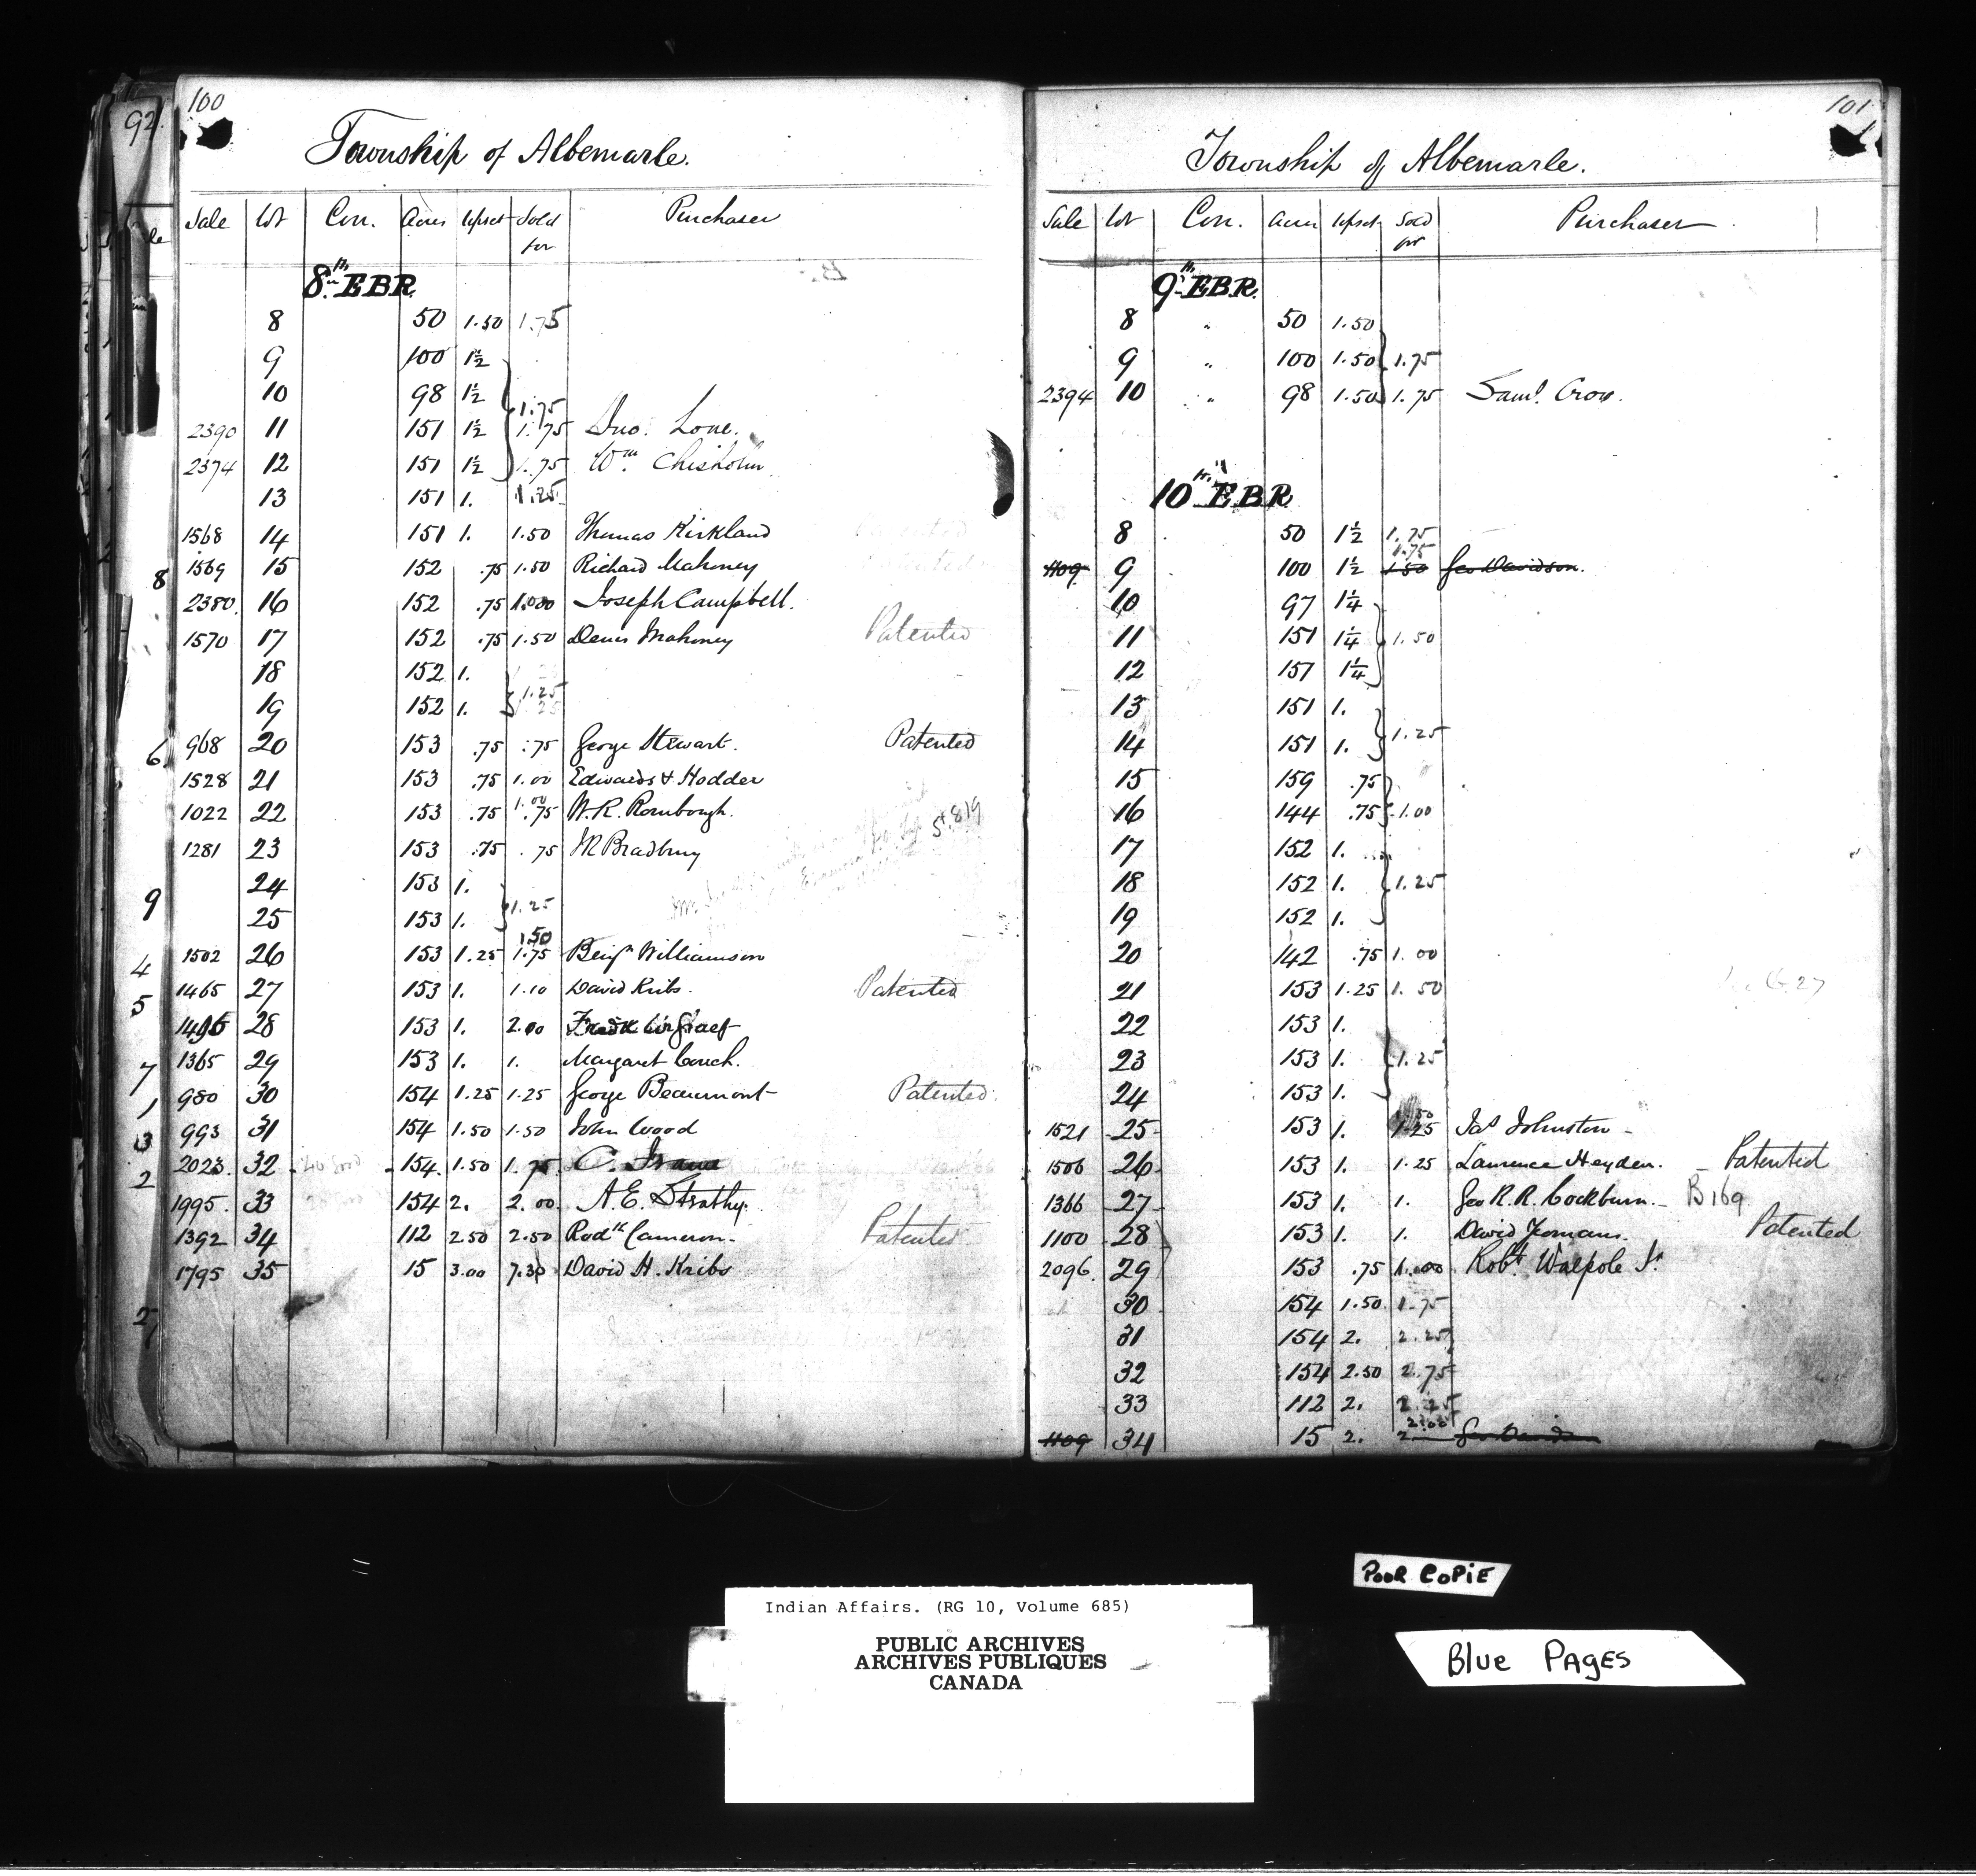 92.
100
Township of Albemarle.
Sale Lot Con. Acres Upset Sold for Purchaser
8th EBR
8 50 1.50 1.75
9 100 1½
10 98 1½ 1.75
2390 11 151 1½ 1.75 Jno. Lone.
2374 12 151 1½ 1.75 Wm. Chisholm
13 151 1. 1.25
1568 14 151 1. 1.50 Thomas Kirkland
1569 15 152 .75 1.50 Richard Mahoney
2380. 16 152 .75 1.00 Joseph Campbell.
1570 17 152 .75 1.50 Denis Mahoney Patented
18 152 1.
19 152 1. 1.25
968 20 153 .75 .75 George Stewart. Patented
1528 21 153 .75 1.00 Edwards & Hodder
1022 22 153 .75 1.00 .75 W.R. Rombough.
1281 23 153 .75 .75 JR Bradbury
24 153 1.
25 153 1. 1.25
1502 26 153 1.25 1.50 1.75 Benjn Williamson
1465 27 153 1. 1.10 David Kribs. Patented
28 153 1. 2.00
1365 29 153 1. 1. Margaret Couch.
980 30 154 1.25 1.25 George Beaumont Patented.
993 31 154 1.50 1.50 John Wood
2023. 32 154. 1.50 1.75 C.
1995. 33 154 2. 2.00. A.E. Strathy.
1392 34 112 2.50 2.50 Rodk Cameron. Patented
1795 35 15 3.00 7.30 David H. Kribs
8
6
9
4
5
7
1
3
2
101
Township of Albemarle.
Sale Lot Con. Acres Upset Sold for Purchaser
9th EBR.
8 " 50 1.50
9 " 100 1.50 1.75
2394 10 " 98 1.50 1.75 Saml. Crow.
10th EBR
8 50 1½ 1.75
1109 9 100 1½ 1.75 1.50 Geo Davidson.
10 97 1¼
11 151 1¼ 1.50
12 151 1¼
13 151 1.
14 151 1. 1.25
15 159 .75
16 144 .75 1.00
17 152 1.
18 152 1. 1.25
19 152 1.
20 142 .75 1.00
21 153 1.25 1.50
22 153 1.
23 153 1. 1.25
24 153 1.
1521 25 153 1. 1.25 Jas Johnston
1506 26 153 1. 1.25 Laurence Heyden. Patented
1366 27 153 1. 1. Geo R. R. Cockburn. B169
1100 28 153 1. 1. David Yeomans. Patented
2096. 29 153 .75 1.00 Robt. Walpole Sr.
30 154 1.50 1.75
31 154 2. 2.25
32 154 2.50 2.75
33 112 2. 2.25
1109 34 15 2. 2.00 2
POOR COPiE
Indian Affairs. (RG 10, Volume 685)
PUBLIC ARCHIVES
ARCHIVES PUBLIQUES
CANADA
Blue PAGES